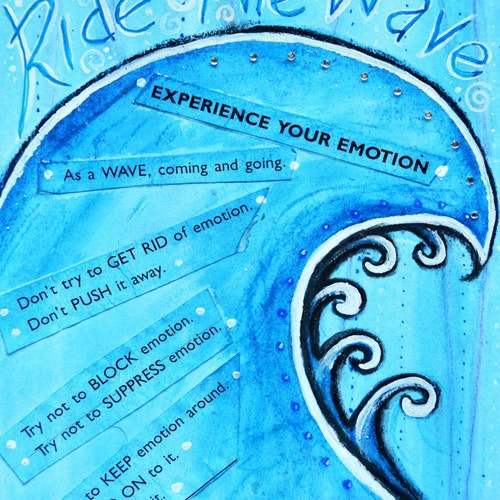 Ride The Wave
EXPERIENCE YOUR EMOTION
As a WAVE, coming and going.
Don't try to GET RID of emotion.
Don't PUSH it away.
Try not to BLOCK emotion.
Try not to SUPPRESS emotion.
to KEEP emotion around.
ON to it.
it.